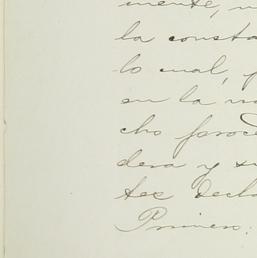 mente, 
la consta
lo cual, 
en la 
cho proce
dera y su
tes decla
Primero.